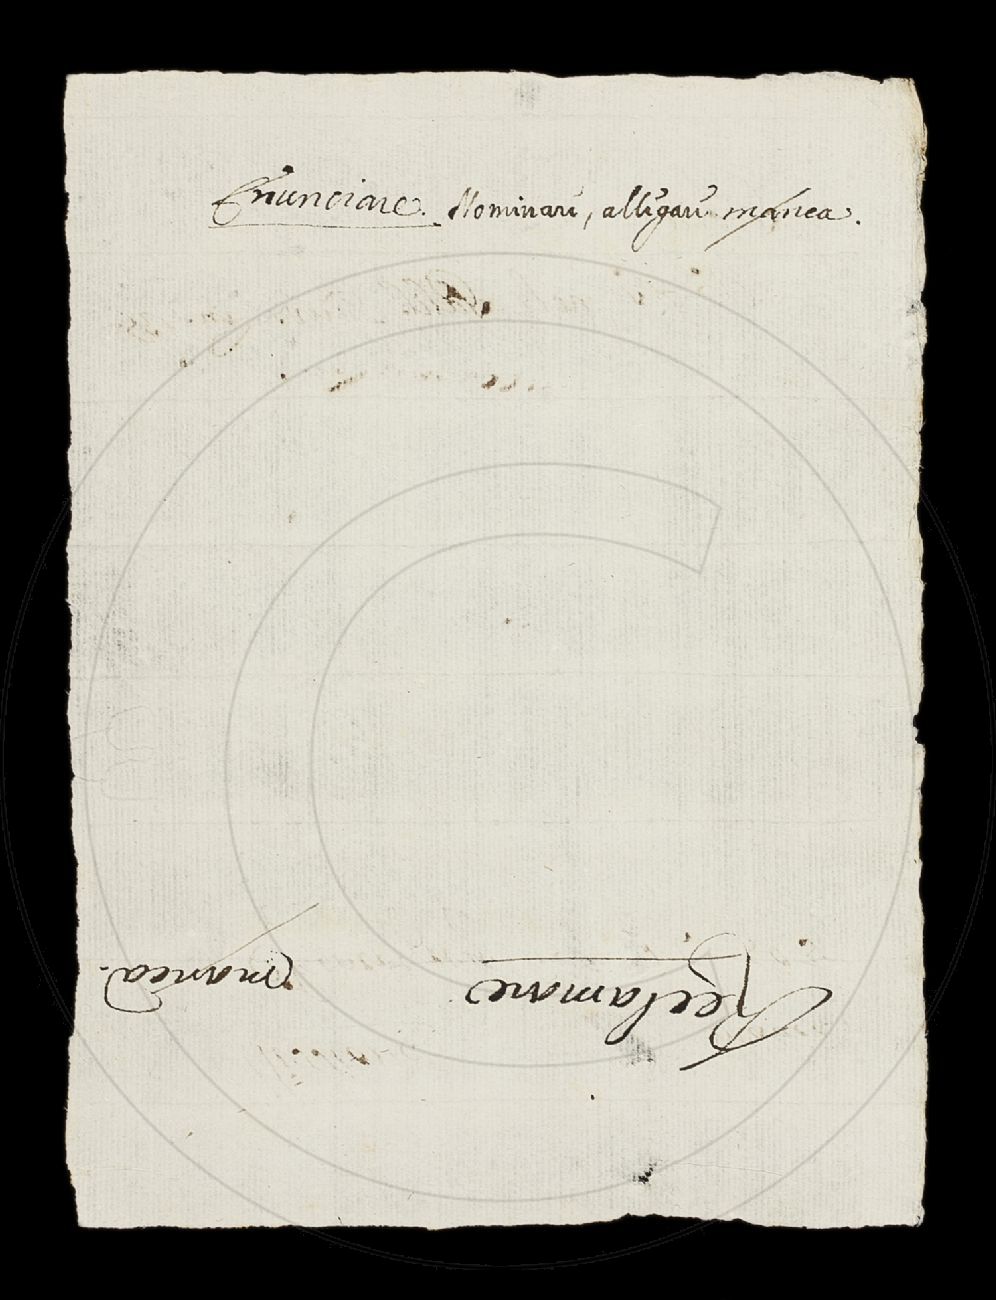 Enunciare. Nominare, allegare manca.
Reclamare manca.